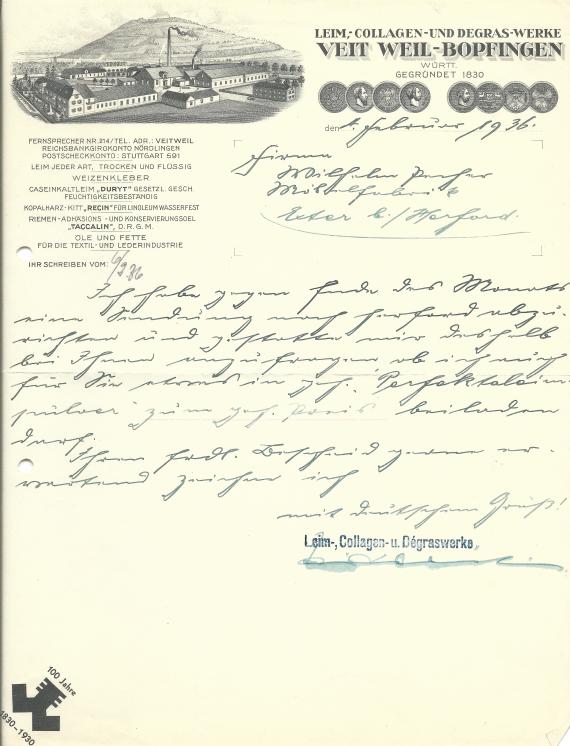 LEIM,- COLLAGEN - UND DEGRAS-WERKE
VEIT WEIL-BOPFINGEN
WÜRTT.
GEGRÜNDET 1830
den 4. Februar 1936.
FERNSPRECHER NR.214/TEL. ADR.: VEITWEIL
REICHSBANKGIROKONTO NÖRDLINGEN
POSTSCHECKKONTO: STUTTGART 591
LEIM JEDER ART, TROCKEN UND FLÜSSIG
WEIZENKLEBER
CASEINKALTLEIM „DURYT" GESETZL. GESCH.
FEUCHTIGKEITSBESTÄNDIG
KOPALHARZ-KITT „RECIN" FÜR LINOLEUM WASSERFEST
RIEMEN-ADHÄSIONS - UND KONSERVIERUNGSOEL
„TACCALIN", D.R.G.M.
ÖLE UND FETTE
FÜR DIE TEXTIL- UND LEDERINDUSTRIE
Firma
Wilhelm
Möbelfabrik
b./Herford.
IHR SCHREIBEN VOM:
Ich habe gegen Ende des Monats
eine Sendung nach Herford abzu-
richten und gestatte mir deshalb
bei Ihnen anzufragen, ob ich auch
für Sie etwas in gesch. Perfektaleim-
pulver zum Preis beiladen
darf.
Ihren frdl. Bescheid gerne er-
wartend zeichne ich
mit deutschem Gruß!
Leim-, Collagen- u. Dégraswerke
100 Jahre
1830-1930